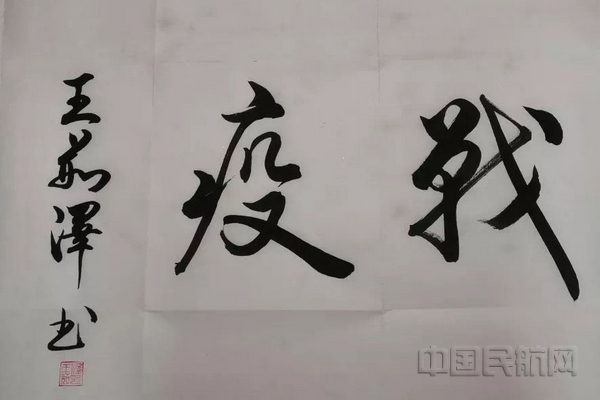 戰疫
王茹澤书
中国民航网